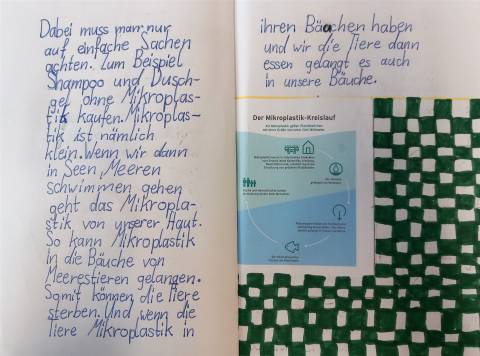 Dabei muss man nur
auf einfache Sachen
achten. Zum Beispiel
Shampoo und Dusch-
gel ohne Mikroplas-
tik kaufen. Mikroplas-
tik ist nämlich
klein. Wenn wir dann
in Seen, Meeren
schwimmen gehen
geht das Mikropla-
stik von unserer Haut.
So kann Mikroplastik
in die Bäuche von
Meerestieren gelangen.
Somit können die Tiere
sterben. Und wenn die
Tiere Mikroplastik in
ihren Bäuchen haben
und wir die Tiere dann
essen gelangt es auch
in unsere Bäuche.
Der Mikroplastik-Kreislauf